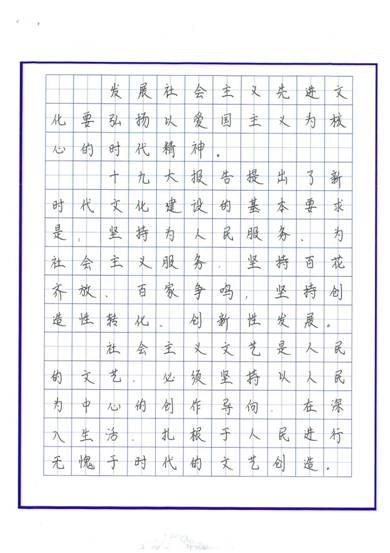 发展社会主义先进文
化要弘扬以爱国主义为核
心的时代精神。
十九大报告提出了新
时代文化建设的基本要求
是，坚持为人民服务、为
社会主义服务，坚持百花
齐放、百家争鸣，坚持创
造性转化、创新性发展。
社会主义文艺是人民
的文艺，必须坚持以人民
为中心的创作导向，在深
入生活、扎根于人民进行
无愧于时代的文艺创造。